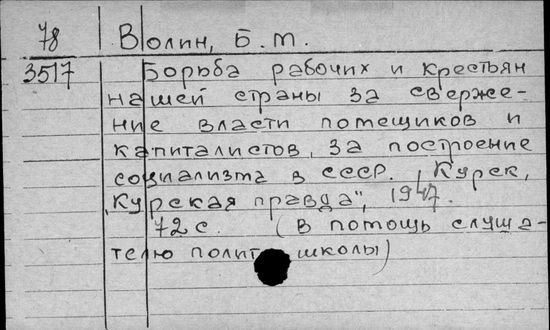 78 Волин, Б.М.
3517 Борьба рабочих и крестьян
нашей страны за сверже-
ние власти помещиков и
капиталистов, за построение
социализма в СССР. Курск,
„Курская правда", 1947.
72 с. (В помощь слуша-
телю полит школы)